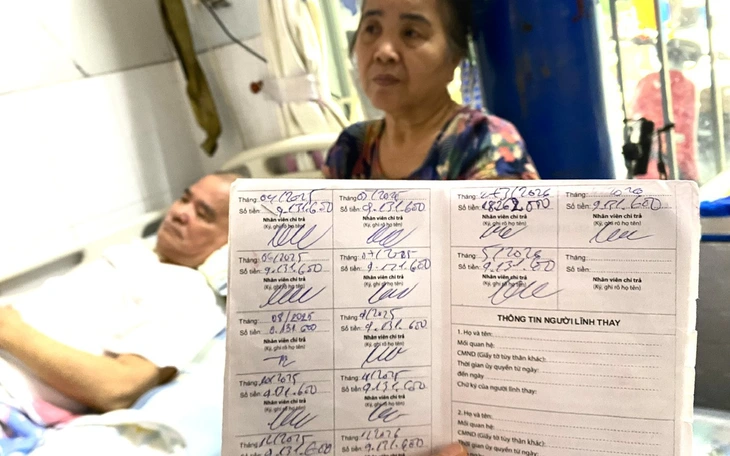 Tháng: 04/2025
Số tiền: 9.131.600
Nhân viên chi trả
(Ký, ghi rõ họ tên)
Tháng: /2025
Số tiền: 9.131.600
Nhân viên chi trả
(Ký, ghi rõ họ tên)
Tháng: /2025
Số tiền: 9.131.600
Nhân viên chi trả
(Ký, ghi rõ họ tên)
Tháng: 07/2025
Số tiền: 9.131.600
Nhân viên chi trả
(Ký, ghi rõ họ tên)
Tháng: 08/2025
Số tiền: 9.131.600
Nhân viên chi trả
(Ký, ghi rõ họ tên)
Tháng: 9/2025
Số tiền: 9.131.600
Nhân viên chi trả
(Ký, ghi rõ họ tên)
Tháng: 10/2025
Số tiền: 9.131.600
Nhân viên chi trả
(Ký, ghi rõ họ tên)
Tháng: 11/2025
Số tiền: 9.131.600
Nhân viên chi trả
(Ký, ghi rõ họ tên)
Tháng: 12/2025
Số tiền: 9.131.600
Nhân viên chi trả
(Ký, ghi rõ họ tên)
Tháng: 1/2026
Số tiền: 9.131.600
Nhân viên chi trả
(Ký, ghi rõ họ tên)
Tháng: 2+3/2026
Số tiền:
Nhân viên chi trả
(Ký, ghi rõ họ tên)
Tháng:
Số tiền: 9.131.600
Nhân viên chi trả
(Ký, ghi rõ họ tên)
Tháng: 5/2026
Số tiền: 9.131.600
Nhân viên chi trả
(Ký, ghi rõ họ tên)
Tháng:
Số tiền:
Nhân viên chi trả
(Ký, ghi rõ họ tên)
THÔNG TIN NGƯỜI LĨNH THAY
1. Họ và tên:
Mối quan hệ:
CMND (Giấy tờ tùy thân khác):
Thời gian ủy quyền từ ngày:
đến ngày
Chữ ký của người lĩnh thay:
2. Họ và tên:
Mối quan hệ:
CMND (Giấy tờ tùy thân khác):
Thời gian ủy quyền từ ngày:
đến ngày